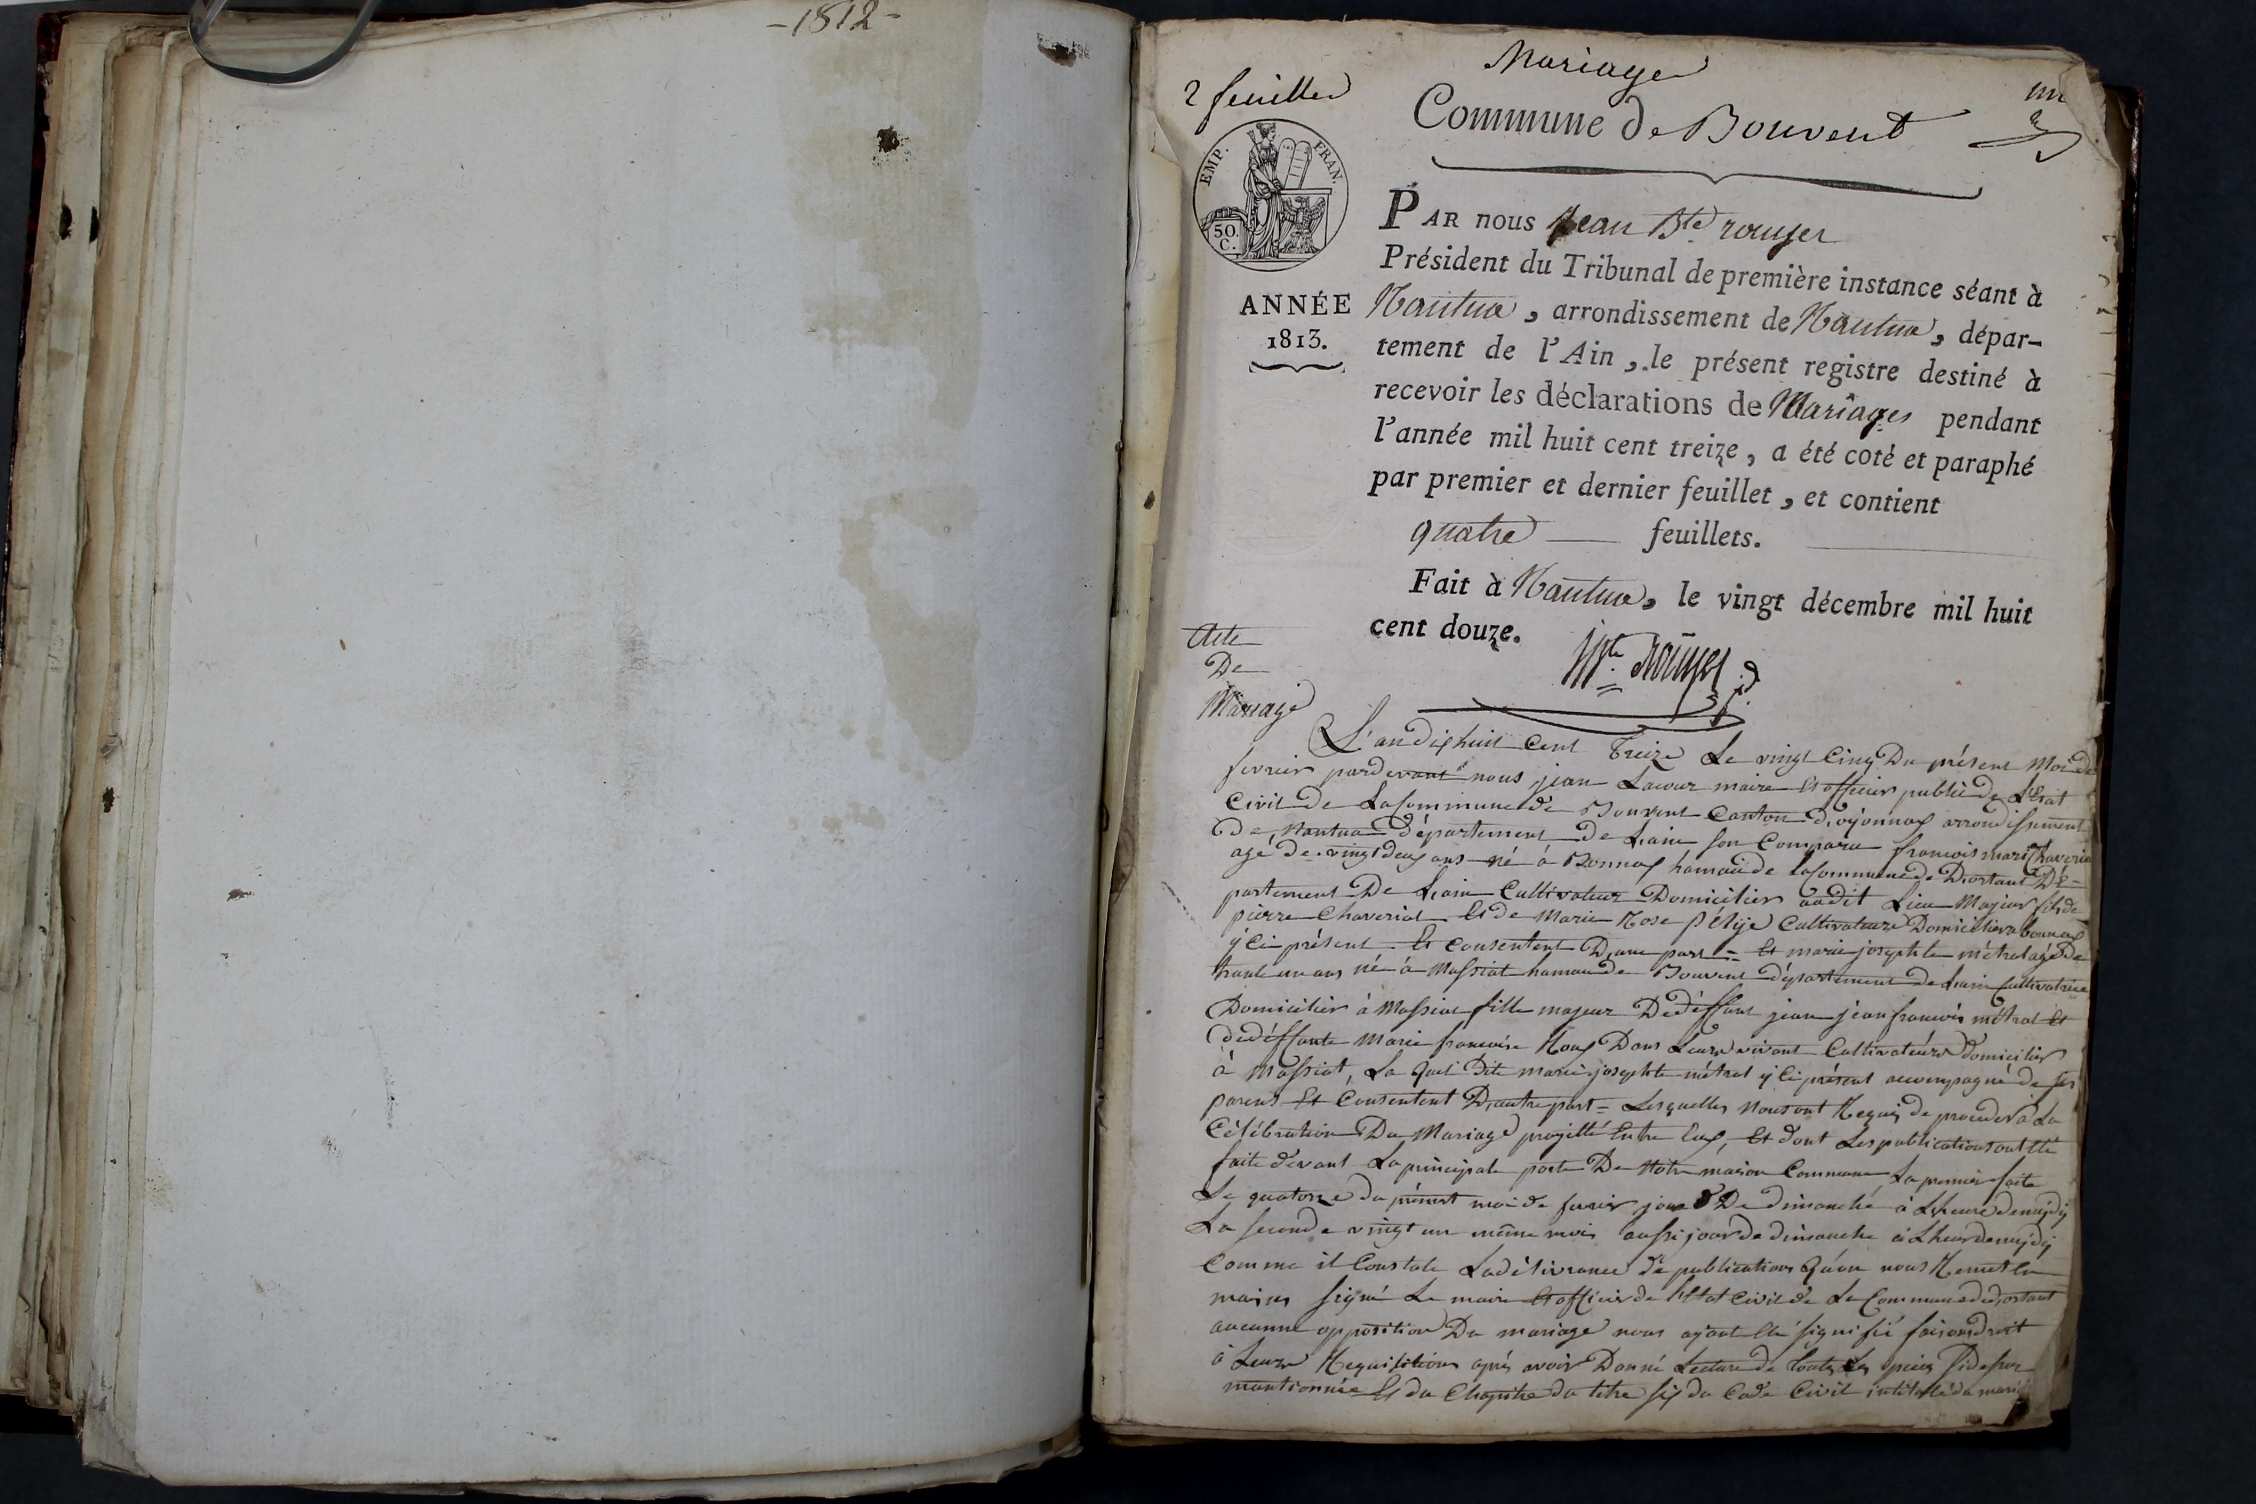 -1812-
Mariage
2 feuilles
un
Commune de Bouvent
EMP. FRAN.
50.
C.
ANNÉE
1813.
PAR nous Jean Bte rouyer
Président du Tribunal de première instance séant à
Nantua, arrondissement de Nantua, dépar-
tement de l'Ain, le présent registre destiné à
recevoir les déclarations de Mariages pendant
l'année mil huit cent treize, a été coté et paraphé
par premier et dernier feuillet, et contient
quatre feuillets.
Fait à Nantua, le vingt décembre mil huit
cent douze.
Acte
De
Mariage
L'an dixhuit Cent Treize Le vingt Cinq Du présent Moi de
fevrier pardevant nous jean Lacour maire Et officier public De L'Etat
Civil De La Commune de Bouvent Canton D'oyonnax arrondissement
De Nantua département De Lain son Comparu francois marie Chaveriat
agé De vingtdeux ans né à Bonnax hamau de la Commune de Dortant Dé=
partement De Lain Cultivateur Domicilier audit Lieu Majeur fils de
pierre Chaveriat Et de Marie Rose Cultivateurs Domicilier a bonnax
y ci présent Et Consentent D'une part = Et marie josephte métral agé De
trante un ans né à Massiat hamau de Bouvent département De Lain Cultivatrice
Domicilier à Massiat fille majeur De déffunt jean jean francois métral Et
de déffunte Marie francoise Roux Dans Leurs vivant Cultivateurs domicilier
à Massiat, La quel Dite marie josephte métral y ci présent accompagné de ses
parens Et Consentent D'autre part = Lesquelles Nous ont Requis de proceder à La
Célébration Du Mariage projetté Entre Eux, Et dont Les publications ont Eté
faite devant La principale porte De Notre maison Commune La premier faite
Le quatorze du présent moi de fevrier jour De dimanche à L'heure de mydy
La seconde vingt un même mois aussi jour de dimanche à L'heur de mydy
Comme il Constate La délivrance de publications qu'on nous Remet En
mains signé Le maire Et officier de l'Etat Civil de La Commune de dortant
aucunne opposition Du mariage nous ayant Eté signifié faisons droit
à Leurs Requisitions après avoir Donné Lecture de toutes Les pièces Ci dessus
mantionnée Et du Chapitre du titre six du Code Civil intitullé du mariage